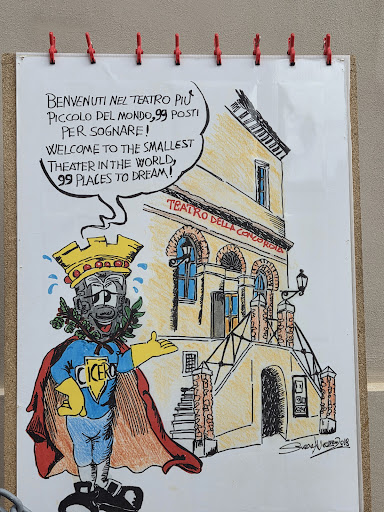 BENVENUTI NEL TEATRO PIU'
PICCOLO DEL MONDO, 99 POSTI
PER SOGNARE!
WELCOME TO THE SMALLEST
THEATER IN THE WORLD,
99 PLACES TO DREAM!
TEATRO DELLA CONCORDIA
CICERO